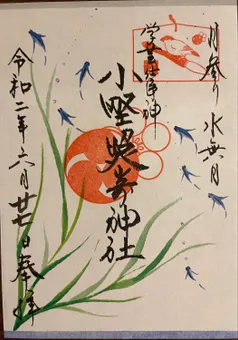 月参り 水無月
学業至誠神
小野照崎神社
令和二年六月廿七日奉拝